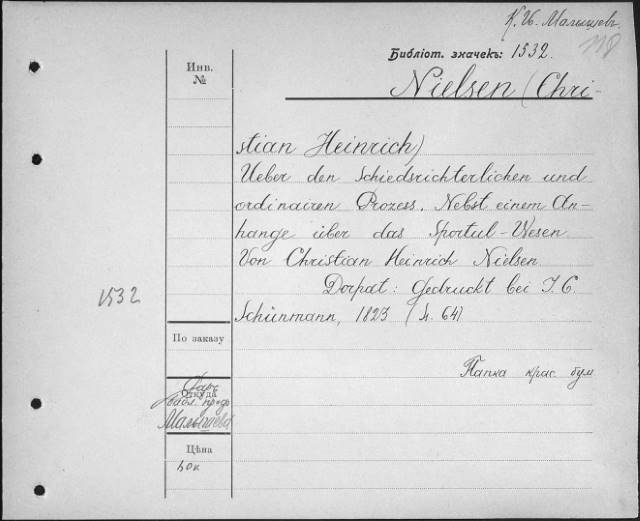 К. И. Малышев.
118
Библіот. значекъ: 1532.
Инв.
№
Nielsen (Chri-
stian Heinrich)
Ueber den Schiedsrichterlichen und
ordinairen Prozess. Nebst einem An-
hange über das Sportul-Wesen
Von Christian Heinrich Nielsen
Dorpat: Gedruckt bei J. C.
Schünmann, 1823 (4. 64)
1532
По заказу
Папка крас бум
Даръ
Откуда
библ. проф
Малышева
Цѣна
50к